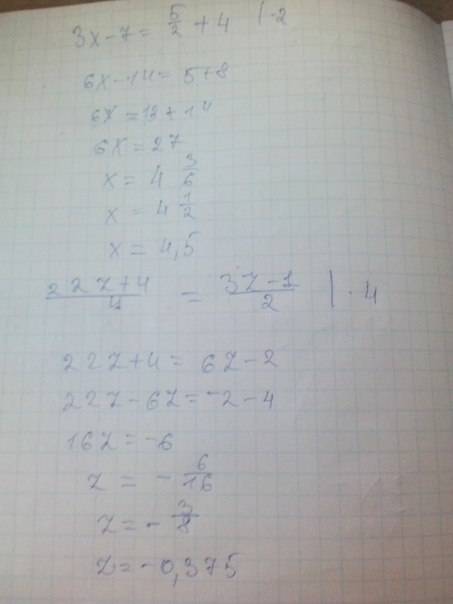 3x-7= 5/2 +4 |·2
6x-14= 5+8
6x=13+14
6x=27
x= 4 3/6
x= 4 1/2
x= 4,5
22z+4/4 = 3z-1/2 |·4
22z+4= 6z-2
22z-6z=-2-4
16z=-6
z = - 6/16
z=- 3/8
z=-0,375